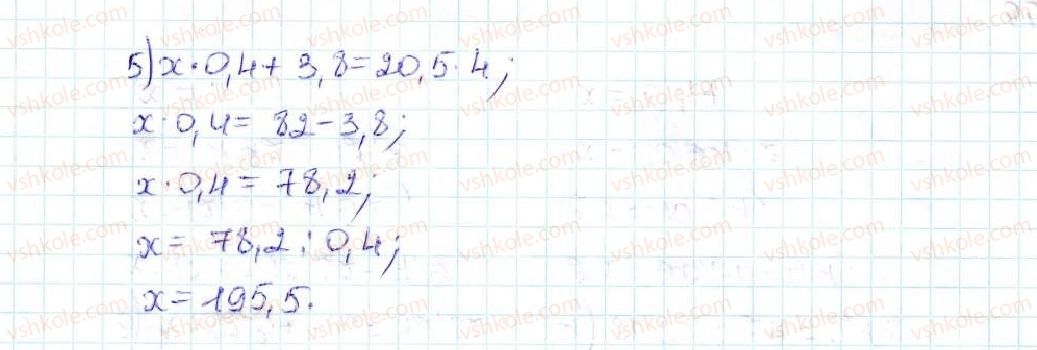 5) x·0,4+ 3,8=20,5·4;
x·0,4= 82-3,8;
x·0,4= 78,2;
x= 78,2:0,4;
x=195,5.
vshkole.com